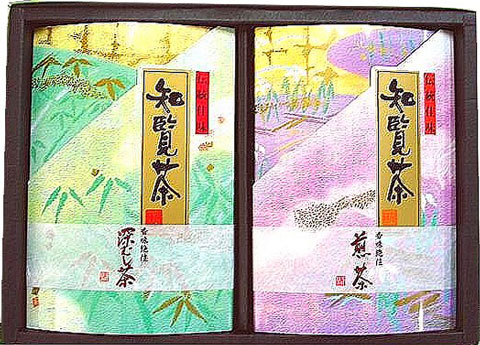 伝統佳味
知覧茶
香味絶佳
深むし茶
伝統佳味
知覧茶
香味絶佳
煎茶